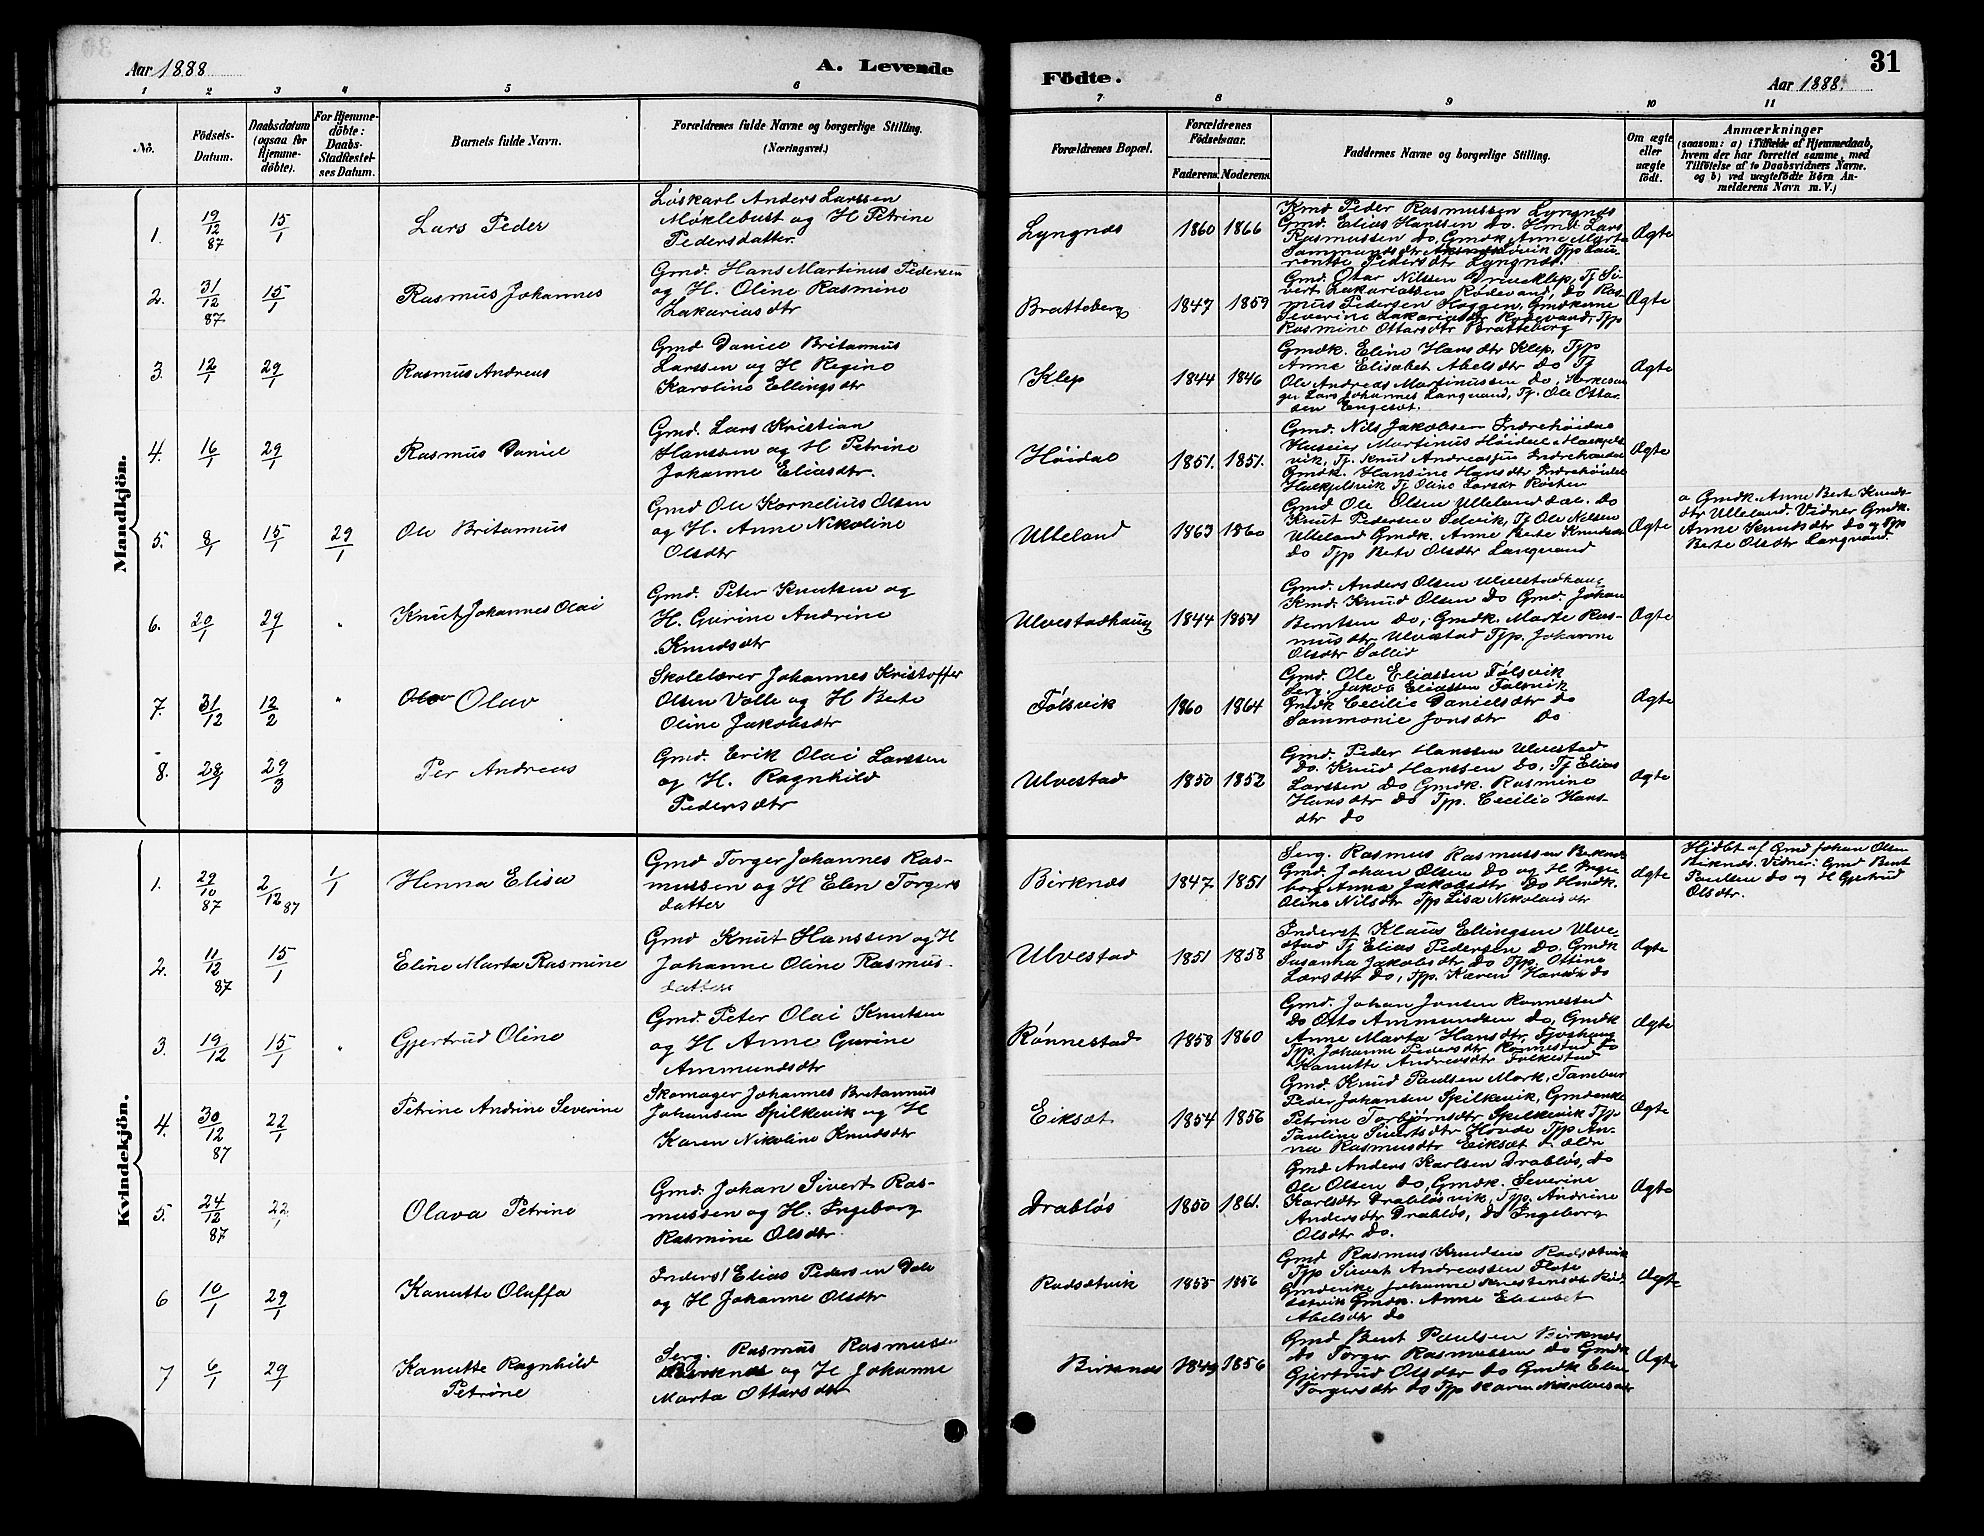 Aar 1888
A. Levende
Födte.
Aar 1888.
31
1 2 3 4 5 6 7 8 9 10 11
No.
Födsels-
Datum.
Daabsdatum
(ogsaa for
Hjemme-
döbte).
For Hjemme-
döbte:
Daabs-
Stadfæstel-
ses Datum.
Barnets fulde Navn.
Forældrenes fulde Navne og borgerlige Stilling.
(Næringsvei.)
Forældrenes Bopæl.
Forældrenes
Födselsaar.
Faderens. Moderens.
Faddernes Navne og borgerlige Stilling.
Om ægte
eller
uægte
født.
Anmærkninger
(saasom: a) i Tilfælde af Hjemmedaab,
hvem der har forrettet samme, med
Tilföielse af to Daabsvidners Navne.
og b) ved uægtefödte Börn An-
melderens Navn m. V.)
Mandkjön.
1.
19/12 87
15/1
Lars Peder
Løskarl Anders Larssen
Møklebust og H Petrine
Pedersdatter.
Lyngnæs
1860 1866
Kmd Peder Rasmussen Lyngnæs
Gmd. Elias Hanssen do. Hmd Lars
Rasmussen do, Gmdk. Anne Marta
Ægte
2.
31/12 87
15/1
Rasmus Johannes
Gmd. Hans Martinus Pedersen
og H. Oline Rasmine
Zakariasdtr
Bratteberg
1847 1859
mus Pedersen Haggen, Gmdkerne
Severine Zakariasdtr Rødevand, Tpp
Rasmine Ottarsdtr Bratteberg
Ægte
3.
12/1
29/1
Rasmus Andreas
Gmd Daniel Britannus
Larssen og H Regine
Karoline Ellingsdtr
Klep
1844 1846
Gmdk. Eline Hansdtr Klep. Tpp
Anne Elisabet Abelsdtr do Tj
Ole Andreas Martinussen do, Kirkesan-
ger Lars Johannes Langvand, Tj. Ole Ottar
sen Engeset.
Ægte
4.
16/1
29/1
Rasmus Daniel
Gmd. Lars Kristian
Hanssen og H Petrine
Johanne Eliasdtr.
Høidal
1851. 1851.
Gmd. Nils Jakobsen Indrehøidal
Huseier Martinus Høidal
vik, Tj. Knud Andreassen Indrehøidal
Gmdk. Hansine Hansdtr Indrehøidal
Ægte
5.
8/1
15/1
29/1
Ole Britannus
Gmd Ole Kornelius Olsen
og H. Anne Nikoline
Olsdtr
Ulleland
1863 1860
Gmd Ole Olsen Ulleland do
Knut Pedersen Selvik, Tj Ole Nilsen
Ulleland Gmdk. Anne Berte Knudsdtr
do Tpp Berte Olsdtr Langvand
Ægte
a Gmdk. Anne Berte Knuds-
dtr Ulleland. Vidner Gmdk.
Anne Knudsdtr do og Tpp
Berte Olsdtr Langvand.
6.
20/1
29/1
"
Knut Johannes Olai
Gmd. Peter Knutsen og
H. Gurine Andrine
Knudsdtr
Ulvestadhaug
1844 1854
Gmd. Anders Olsen Ulvestadhaug
Kmd. Knud Olsen do Gmd. Johan
Berntsen do, Gmdk. Marte Ras-
musdtr Ulvestad Tpp. Johanne
Olsdtr Sollid
Ægte
7.
31/12
12/2
"
Olav
Skolelærer Johannes Kristoffer
Olsen Valle og H Berte
Oline Jakobsdtr
Følsvik
1860 1864
Gmd. Ole Eliassen Følsvik
Serg. Jakob Eliassen Følsvik
Gmdk Cecilie Danielsdtr do
Sammonie Jonsdtr do
Ægte
8.
28/1
29/3
Per Andreas
Gmd. Erik Olai Larssen
og H. Ragnhild
Pedersdtr
Ulvestad
1850 1852
Gmd. Peder Hanssen Ulvestad
do. Knud Hanssen do, Tj Elias
Larssen do Gmdk. Rasmine
Hansdtr do Tpp. Cecilie Hans-
dtr do
Ægte
Kvindekjön.
1.
29/10 87
2/12 87
1/1
Henna Elisa
Gmd Torger Johannes Ras-
mussen og H Elen Torgers
datter
Birknæs
1847 1851
Serg. Rasmus Rasmussen Birknæs
Gmd. Johan Olsen do og H Inge
borg Anna Jakobsdtr do Hmdk.
Oline Nilsdtr Tpp Lisa Nikolaisdtr
Ægte
Hjdbt af Gmd Johan Olsen
Birknæs. Vidner: Gmd Bent
Paulsen do og H Gjertrud
Olsdtr.
2.
11/12 87
15/1
Eline Marta Rasmine
Gmd Knut Hanssen og H
Johanne Oline Rasmus-
datter
Ulvestad
1851 1858
Inderst Klaus Ellingsen Ulve-
stad Tj Elias Pedersen do, Gmdk
Susanna Jakobsdtr do Tpp. Ottine
Larsdtr do, Tpp. Karen Hansdtr do
Ægte
3.
19/12
15/1
"
Gjertrud Oline
Gmd. Peter Olai Knutsen
og H Anne Gurine
Ammundsdtr
Rønnestad
1858 1860
Gmd. Johan Jonsen Rønnestad
do Otto Ammundsen do, Gmdk
Anne Marta Hansdtr
Tpp. Johanne Pedersdtr Rønnestad do
Kanutte Andreasdtr Folkestad
Ægte
4.
30/12 87
22/1
Petrine Andrine Severine
Skomager Johannes Britannus
Johansen Spilkevik og H
Karen Nikoline Knudsdtr
Eiksæt
1854 1856
Gmd. Knud Paulsen Mork,
Peder Johansen Spilkevik, Gmdenke
Petrine Torbjørnsdtr Spilkevik Tpp.
Pauline Sivertsdtr Hovde Tpp An-
na Rasmusdtr Eiksæt d. ældre
Ægte
5.
24/12 87
22/1
Olava Petrine
Gmd. Johan Sivert Ras-
mussen og H. Ingeborg
Rasmine Olsdtr.
Drabløs
1850 1861.
Gmd Anders Karlsen Drabløs, do
Ole Olsen do, Gmdk. Severine
Karlsdtr Drabløsvik, Tpp. Andrine
Andersdtr Drabløs, do Ingeborg
Olsdtr do.
Ægte
6
10/1
29/1
Kanutte Oluffa
Inderst Elias Pedersen Dale
og H Johanne Olsdtr
Rødsætvik
1855 1856
Gmd Rasmus Knudsen Rødsætvik
Tpp Sivert Andreassen Flote
Gmdenke Johanne
sætvik Gmdk. Anne Elisabet
Abelsdtr do
Ægte
7
6/1
29/1
Kanutte Ragnhild
Petrine
Serg. Rasmus Rasmussen
Birknæs og H Johanne
Marta Ottarsdtr
Birknæs
1849 1856
Gmd Bent Paulsen Birknæs
do Torger Rasmussen do Gmdk
Gjertrud Olsdtr do Gmdk Elen
Torgersdtr do Tpp Karen Nikolaisdtr
Ægte